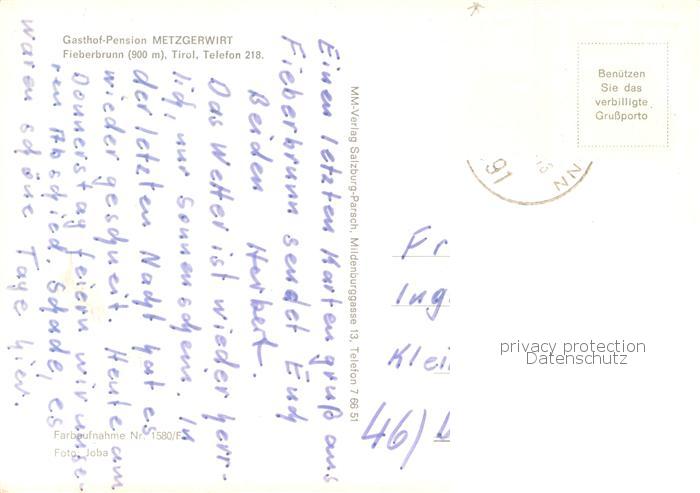 Gasthof-Pension METZGERWIRT
Fieberbrunn (900 m), Tirol, Telefon 218.
Einen letzten Kartengruß aus
Fieberbrunn sendet Euch
Beiden Herbert.
Das Wetter ist wieder herr-
lich, nur Sonnenschein. In
der letzten Nacht hat es
wieder geschneit. Heute am
Donnerstag feiern wir unse-
ren Abschied. Schade, es
waren schöne Tage hier.
Farbaufnahme Nr. 1580/F
Foto: Joba
MM-Verlag Salzburg-Parsch, Mildenburggasse 13, Telefon 7 66 51
Benützen
Sie das
verbilligte
Grußporto
NN
Fr
Ing
Klei
46)
privacy protection
Datenschutz